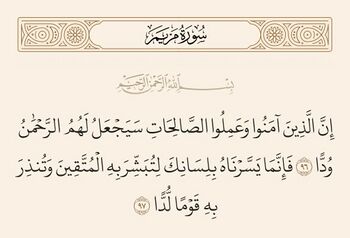 سُورَةُ مَرْيَمَ
بِسْمِ اللَّهِ الرَّحْمَٰنِ الرَّحِيمِ
إِنَّ الَّذِينَ آمَنُوا وَعَمِلُوا الصَّالِحَاتِ سَيَجْعَلُ لَهُمُ الرَّحْمَٰنُ
وُدًّا ٩٦ فَإِنَّمَا يَسَّرْنَاهُ بِلِسَانِكَ لِتُبَشِّرَ بِهِ الْمُتَّقِينَ وَتُنذِرَ
بِهِ قَوْمًا لُّدًّا ٩٧